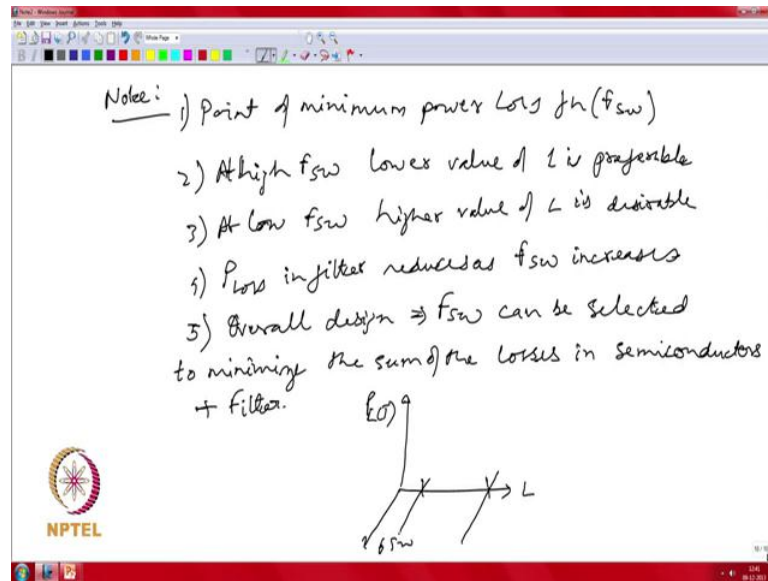 Note2 - Windows Journal
File Edit View Insert Actions Tools Help
Whole Page
B I
Note: 1) Point of minimum power loss fn (fsw)
2) At high fsw lower value of L is preferable
3) At low fsw higher value of L is desirable
4) PLoss in filter reduces as fsw increases
5) Overall design ⇒ fsw can be selected
to minimize the sum of the losses in semiconductors
+ Filter.
L
fsw
NPTEL
12:41